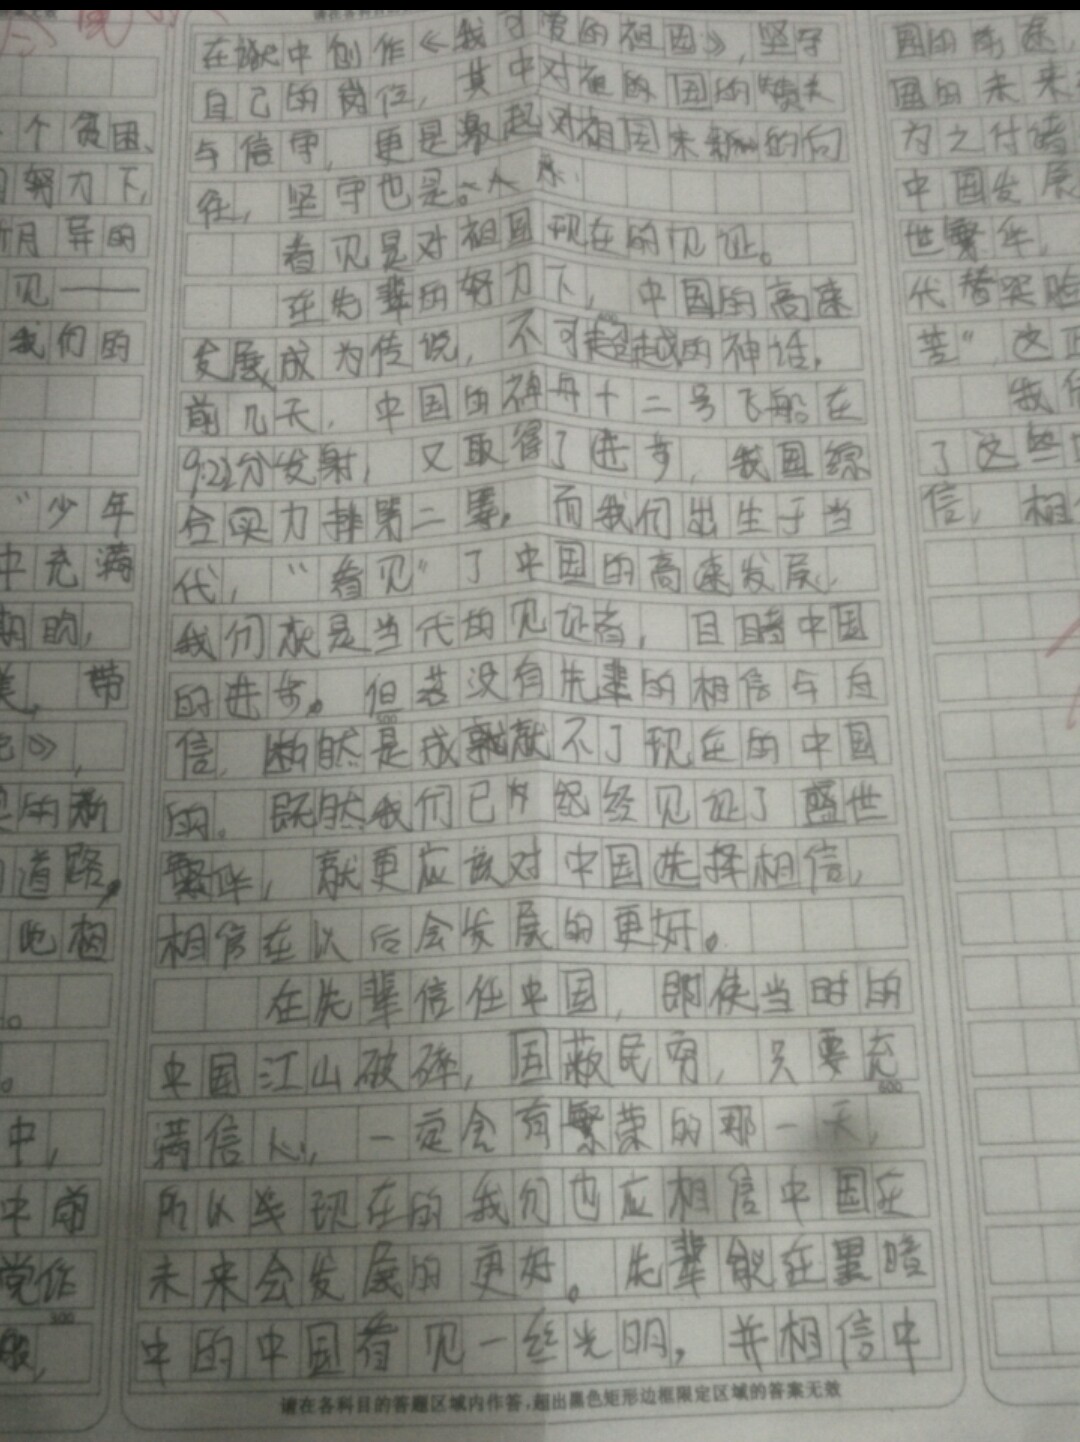 在狱中创作《我可爱的祖国》，坚守
自己的岗位，其中对祖的国的赞美
与信守，更是激起对祖国未新的向
往，坚守也是。
看见是对祖国现在的见证。
在先辈的努力下，中国的高速
发展成为传说，不可超越的神话。
前几天，中国的神舟十二号飞船在
9:22分发射，又取得了进步，我国综
合实力排第二第，而我们出生于当
代，“看见”了中国的高速发展，
我们就是当代的见证者，目睹中国
的进步。但若没有先辈的相信与自
信，断然是成就不了现在的中国
的。既然我们已经经见证了盛世
繁华，就更应该对中国选择相信，
相信在以后会发展的更好。
在先辈信任中国，即使当时的
中国江山破碎，国敝民穷，只要充
600
满信心，一定会有繁荣的那一天，
所以现在的我们也应相信中国在
未来会发展的更好。先辈能在黑暗
中的中国看见一丝光明，并相信中
请在各科目的答题区域内作答，超出黑色矩形边框限定区域的答案无效
个贫困、
努力下，
月异的
见——
我们的
“少年
中充满
期盼，
带
》，
的新
道路，
地相
中，
中前
党作
300
国的前途，
国的未来
为之付诸
中国发展
世繁华，
代替实
苦”，这正
我们
了这些
信，相信